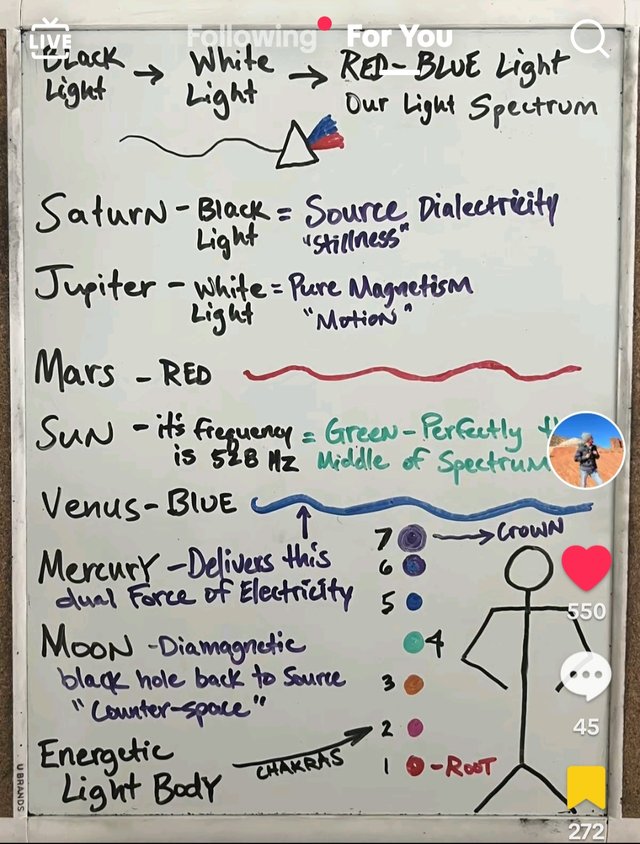 LIVE
Following
For You
Black → White → RED-BLUE Light
Light Light Our Light Spectrum
Saturn - Black = Source Dialectricity
Light "Stillness"
Jupiter - White = Pure Magnetism
Light "Motion"
Mars - RED
Sun - it's frequency = Green - Perfectly
is 528 Hz Middle of Spectrum
Venus - BLUE
7 → CROWN
Mercury - Delivers this
6
dual Force of Electricity
5
Moon - Diamagnetic
4
black hole back to Source
3
"Counter-space"
2
Energetic
Light Body
CHAKRAS
1 - ROOT
UBRANDS
550
45
272